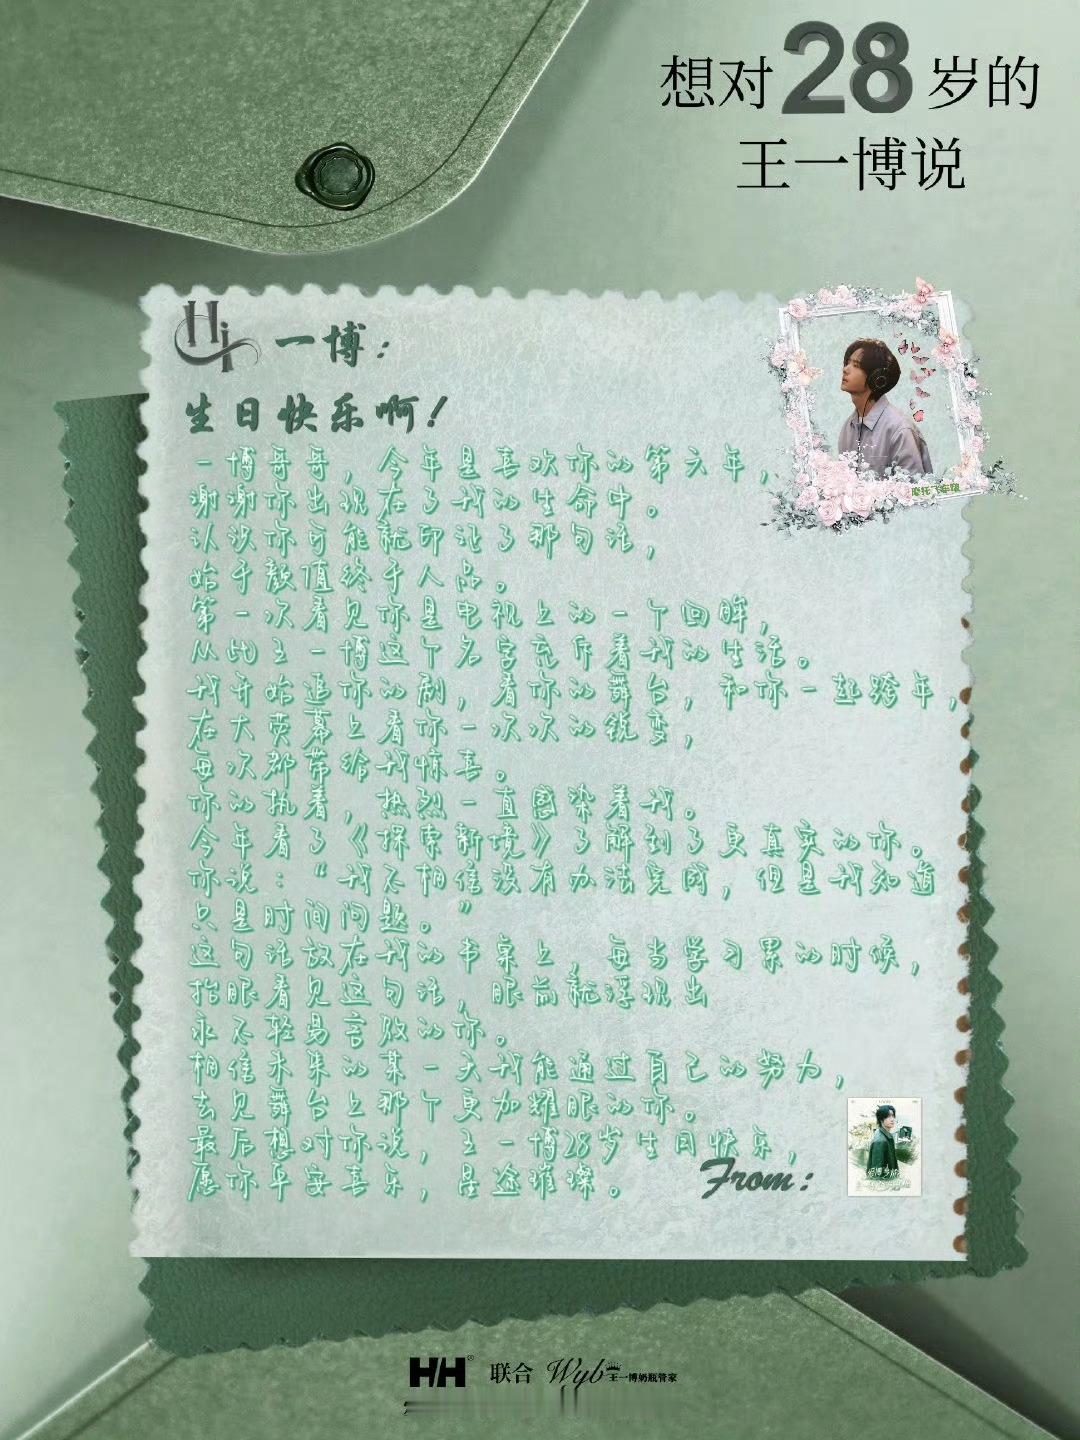 想对28岁的
王一博说
Hi 一博：
生日快乐啊！
一博哥哥，今年是喜欢你的第六年，
谢谢你出现在了我的生命中。
认识你可能就印证了那句话，
始于颜值终于人品。
第一次看见你是电视上的一个回眸，
从此王一博这个名字充斥着我的生活。
我开始追你的剧，看你的舞台，和你一起跨年，
在大荧幕上看你一次次的锐变，
每次都带给我惊喜。
你的执着，热烈一直感染着我。
今年看了《探索新境》了解到了更真实的你。
你说：“我不相信没有办法完成，但是我知道
只是时间问题。”
这句话放在我的书桌上，每当学习累的时候，
抬眼看见这句话，眼前就浮现出
永不轻易言败的你。
相信未来的某一天我能通过自己的努力，
去见舞台上那个更加耀眼的你。
最后想对你说，王一博28岁生日快乐，
愿你平安喜乐，星途璀璨。
From：
HH® 联合 Wyb 王一博奶瓶管家